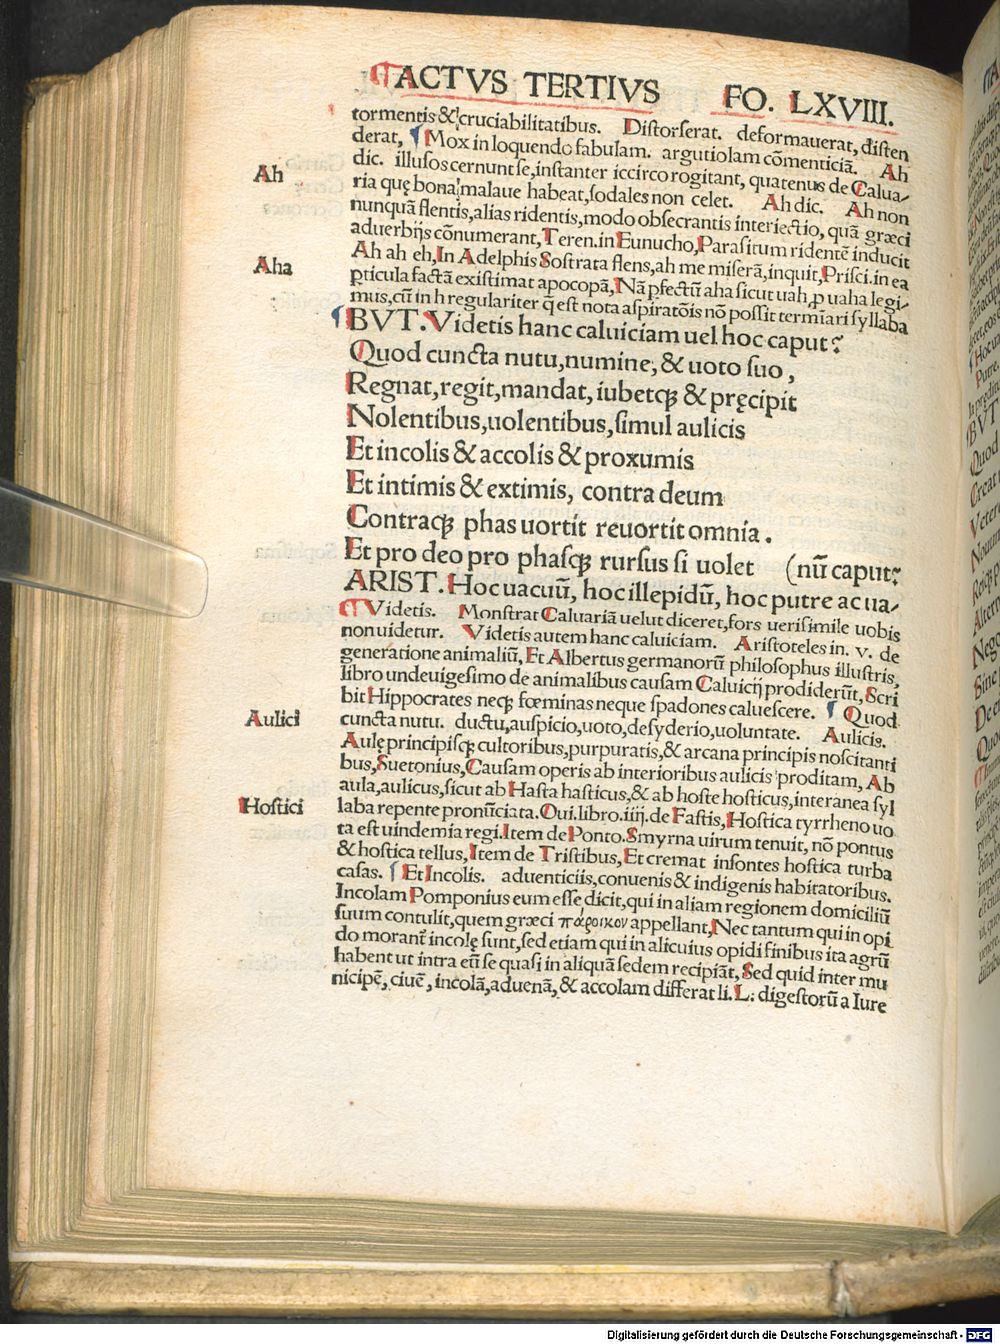 ACTVS TERTIVS FO. LXVIII.
tormentis & cruciabilitatibus. Distorserat. deformauerat, disten
derat, Mox in loquendo fabulam. argutiolam cōmenticiā. Ah
Ah
dic. illusos cernunt se, instanter iccirco rogitant, quatenus de Calua-
ria quę bona malaue habeat, sodales non celet. Ah dic. Ah non
nunquā flentis, alias ridentis, modo obsecrantis interiectio, quā græci
aduerbijs cōnumerant, Teren. in Eunucho, Parasitum ridentē inducit
Aha
Ah ah eh, In Adelphis Sostrata flens, ah me miserā, inquit, Prisci. in ea
ꝑticula factā existimat apocopā, Nā ꝑfectū aha sicut uah, ꝓ uaha legi-
mus, cū in h regulariter q̄ est nota aspiratōis nō possit termīari syllaba
BVT. Videtis hanc caluiciam uel hoc caput?
Quod cuncta nutu, numine, & uoto suo,
Regnat, regit, mandat, iubetqꝫ & pręcipit
Nolentibus, uolentibus, simul aulicis
Et incolis & accolis & proxumis
Et intimis & extimis, contra deum
Contraqꝫ phas uortit reuortit omnia.
Et pro deo pro phasqꝫ rursus si uolet (nū caput?
ARIST. Hoc uacuū, hoc illepidū, hoc putre ac ua-
Videtis. Monstrat Caluariā uelut diceret, fors uerisimile uobis
non uidetur. Videtis autem hanc caluiciam. Aristoteles in. v. de
generatione animaliū, Et Albertus germanorū philosophus illustris,
libro undeuigesimo de animalibus causam Caluicij prodiderūt, Scri
bit Hippocrates neqꝫ fœminas neque spadones caluescere. Quod
Aulici
cuncta nutu. ductu, auspicio, uoto, desyderio, uoluntate. Aulicis.
Aulę principisqꝫ cultoribus, purpuratis, & arcana principis noscitanti
bus, Suetonius, Causam operis ab interioribus aulicis proditam, Ab
aula, aulicus, sicut ab Hasta hasticus, & ab hoste hosticus, interanea syl
Hostici
laba repente pronūciata. Oui. libro. iiij. de Fastis, Hostica tyrrheno uo
ta est uindemia regi. Item de Ponto. Smyrna uirum tenuit, nō pontus
& hostica tellus, Item de Tristibus, Et cremat insontes hostica turba
casas. Et Incolis. aduenticiis, conuenis & indigenis habitatoribus.
Incolam Pomponius eum esse dicit, qui in aliam regionem domiciliū
suum contulit, quem græci πάροικον appellant, Nec tantum qui in opi
do morant̄ incolę sunt, sed etiam qui in alicuius opidi finibus ita agrū
habent ut intra eū se quasi in aliquā sedem recipiāt, Sed quid inter mu
nicipē, ciuē, incolā, aduenā, & accolam differat li. L. digestorū a Iure
Digitalisierung gefördert durch die Deutsche Forschungsgemeinschaft - DFG